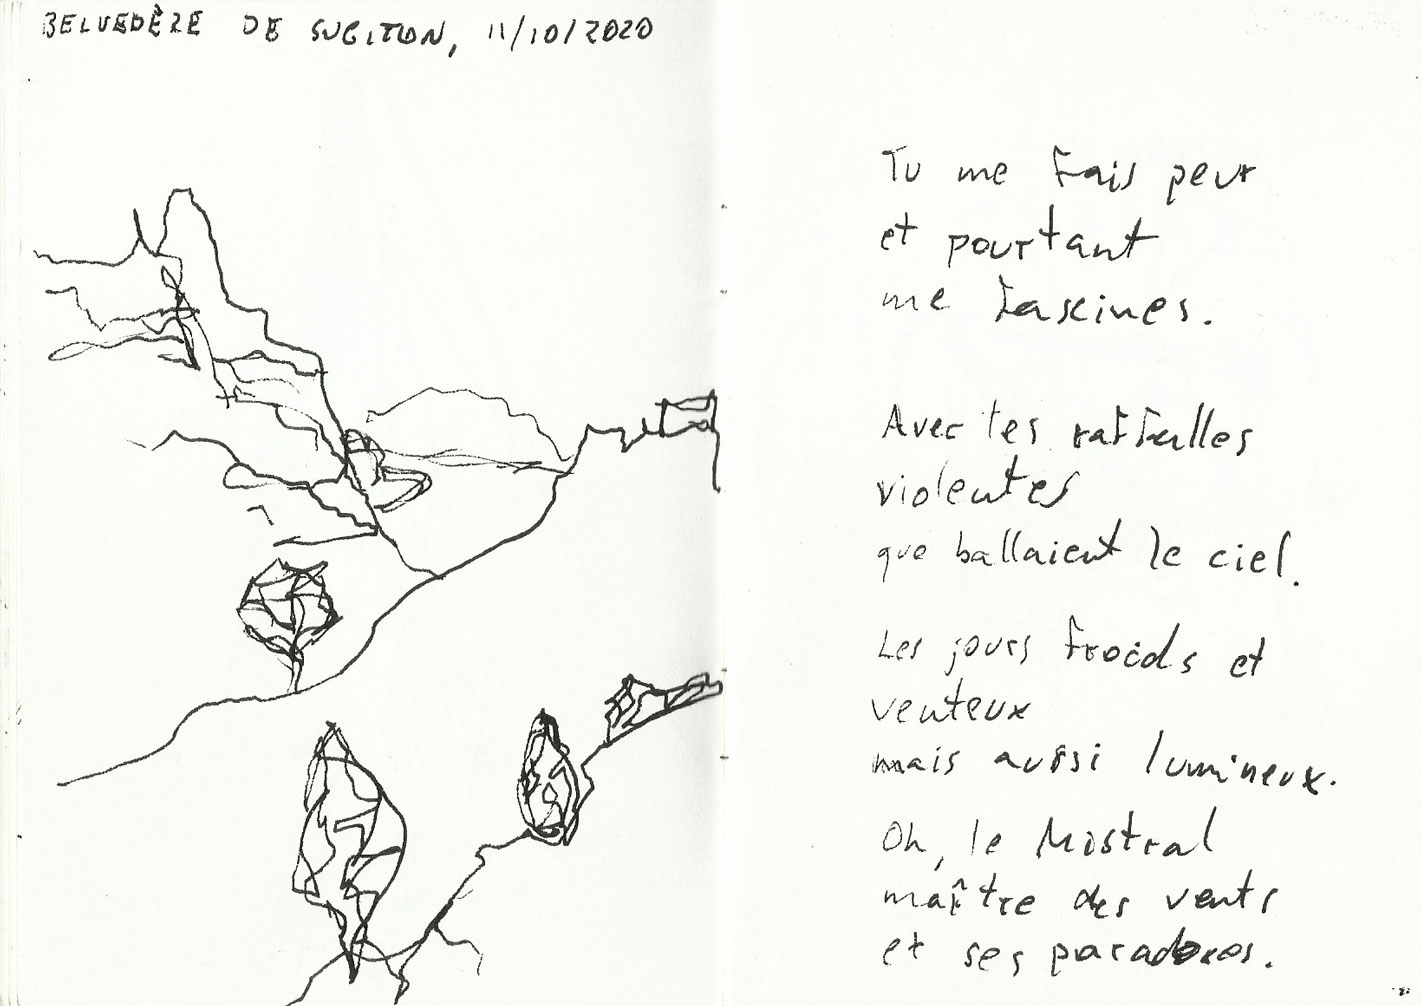 BELVEDÈRE DE SUGITON, 11/10/2020
Tu me fais peur
et pourtant
me fascines.
Avec tes raffalles
violentes
que ballaient le ciel.
Les jours froids et
venteux
mais aussi lumineux.
Oh, le Mistral
maître des vents
et ses paradoxes.